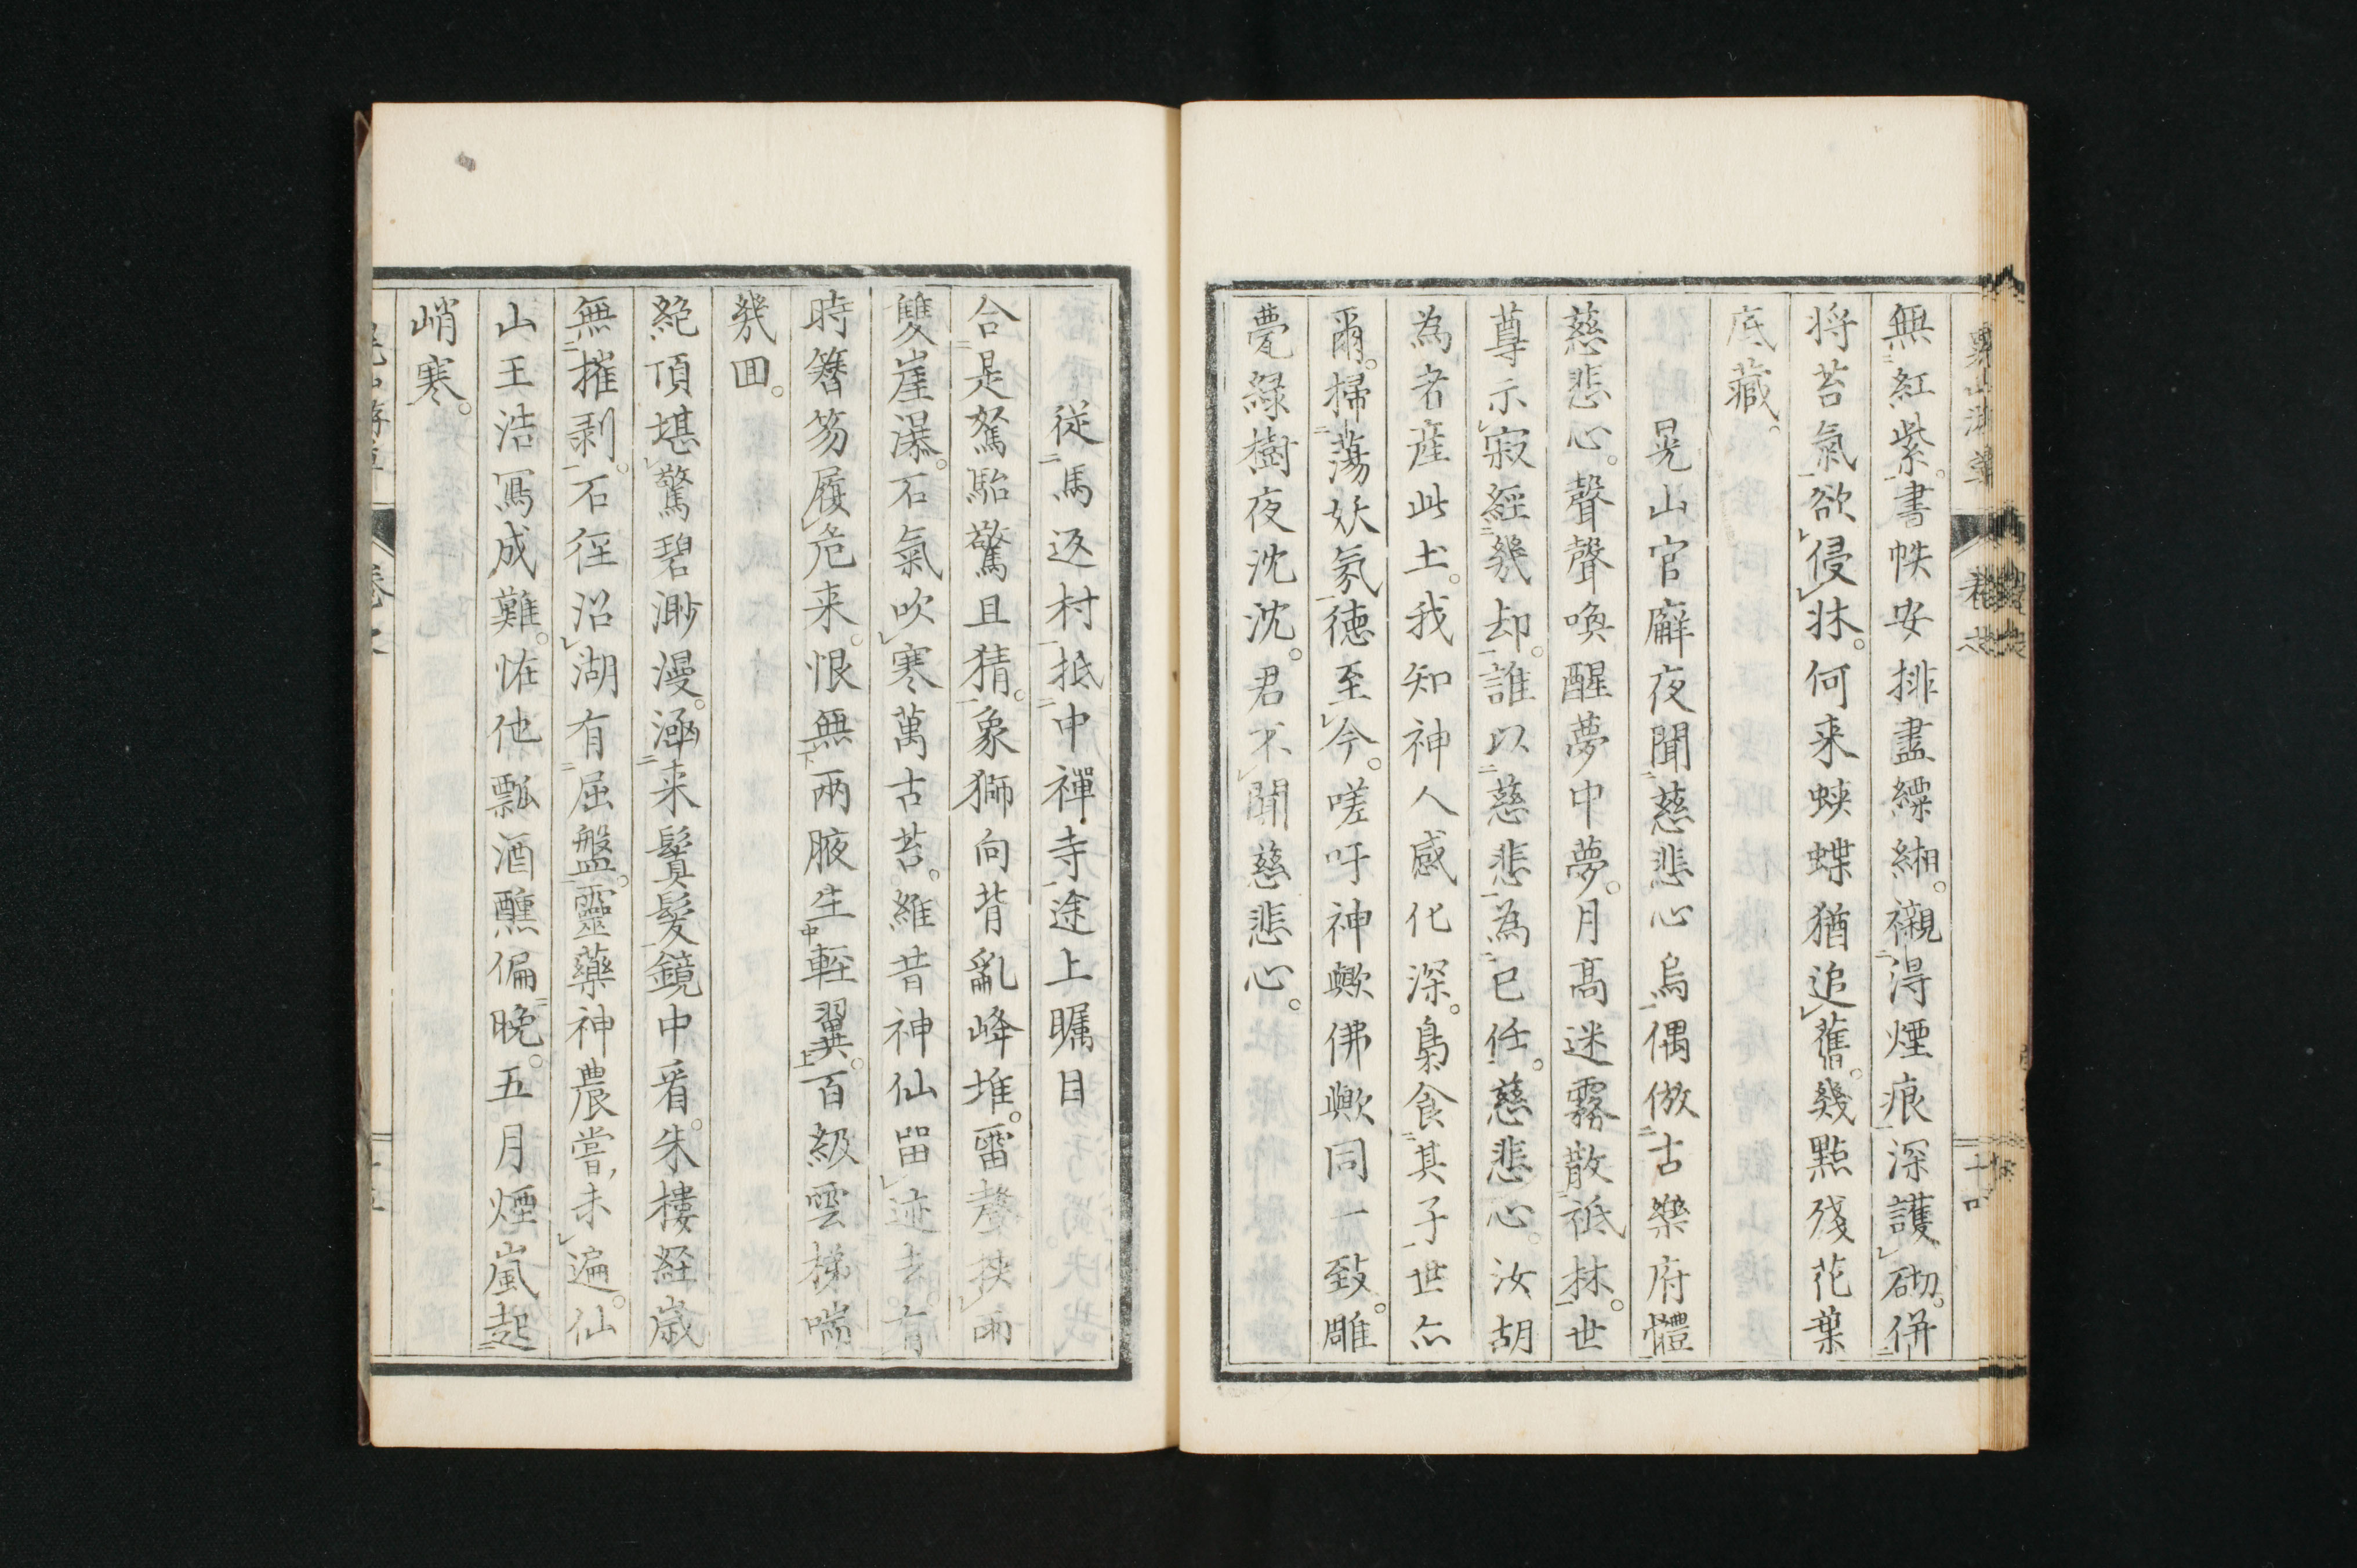 無紅紫。書帙安排盡縹緗。襯淂煙痕深護砌。併
将苔氣欲侵牀。何来蛺蝶猶追舊。幾點殘花葉
底藏。
晃山官廨夜聞慈悲心鳥偶倣古樂府體
慈悲心。聲聲喚醒夢中夢。月髙迷霧散祗林。世
尊示寂經幾却。誰以慈悲為已任。慈悲心。汝胡
為者産此土。我知神人感化深。梟食其子世亦
爾。掃蕩妖氛徳至今。嗟吁神歟佛歟同一致。雕
甍綠樹夜沈沈。君不聞慈悲心。
従馬返村抵中禪寺途上矚目
合是駑駘驚且猜。象獅向背亂峰堆。雷聲挾雨
雙崖瀑。石氣吹寒萬古苔。維昔神仙留迹去。有
時簪笏履危来。恨無兩腋生輕翼。百級雲梯喘
幾回。
絶頂堪驚碧渺漫。涵来鬢髮鏡中看。朱樓経歳
無摧剥。石徑沿湖有屈盤。靈藥神農嘗未遍。仙
山王浩冩成難。恠他瓢酒醺偏晩。五月煙嵐起
峭寒。